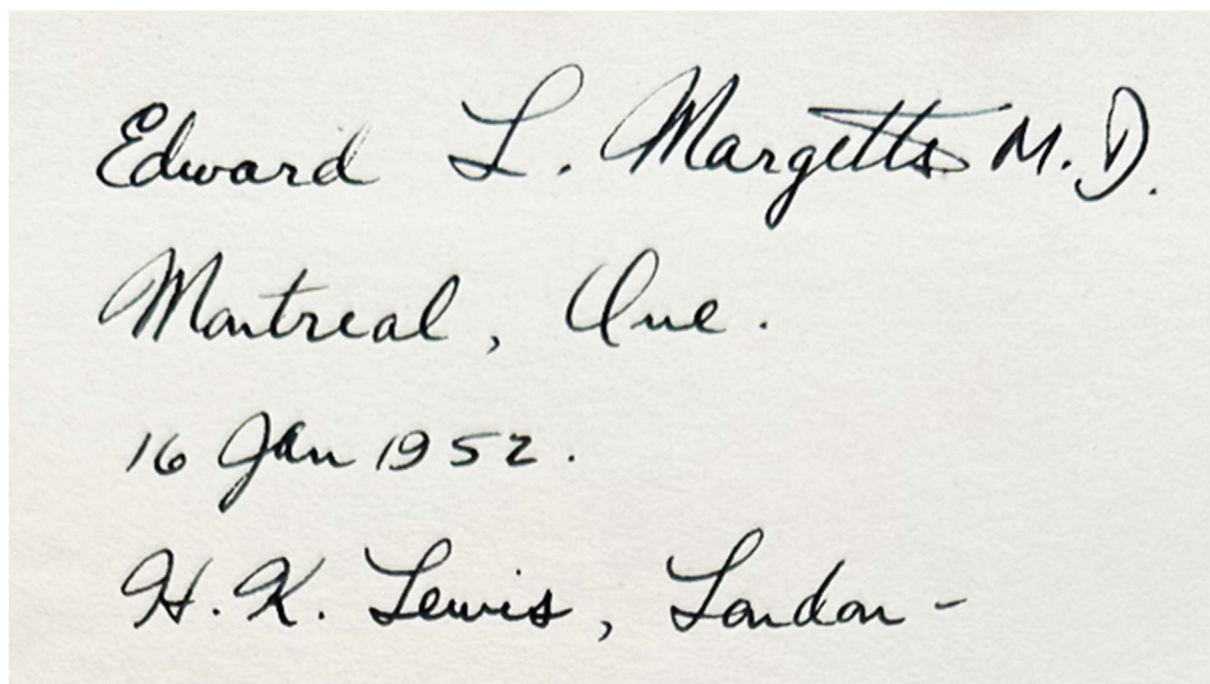 Edward L. Margetts M.D.
Montreal, Que.
16 Jan 1952.
H.K. Lewis, London -